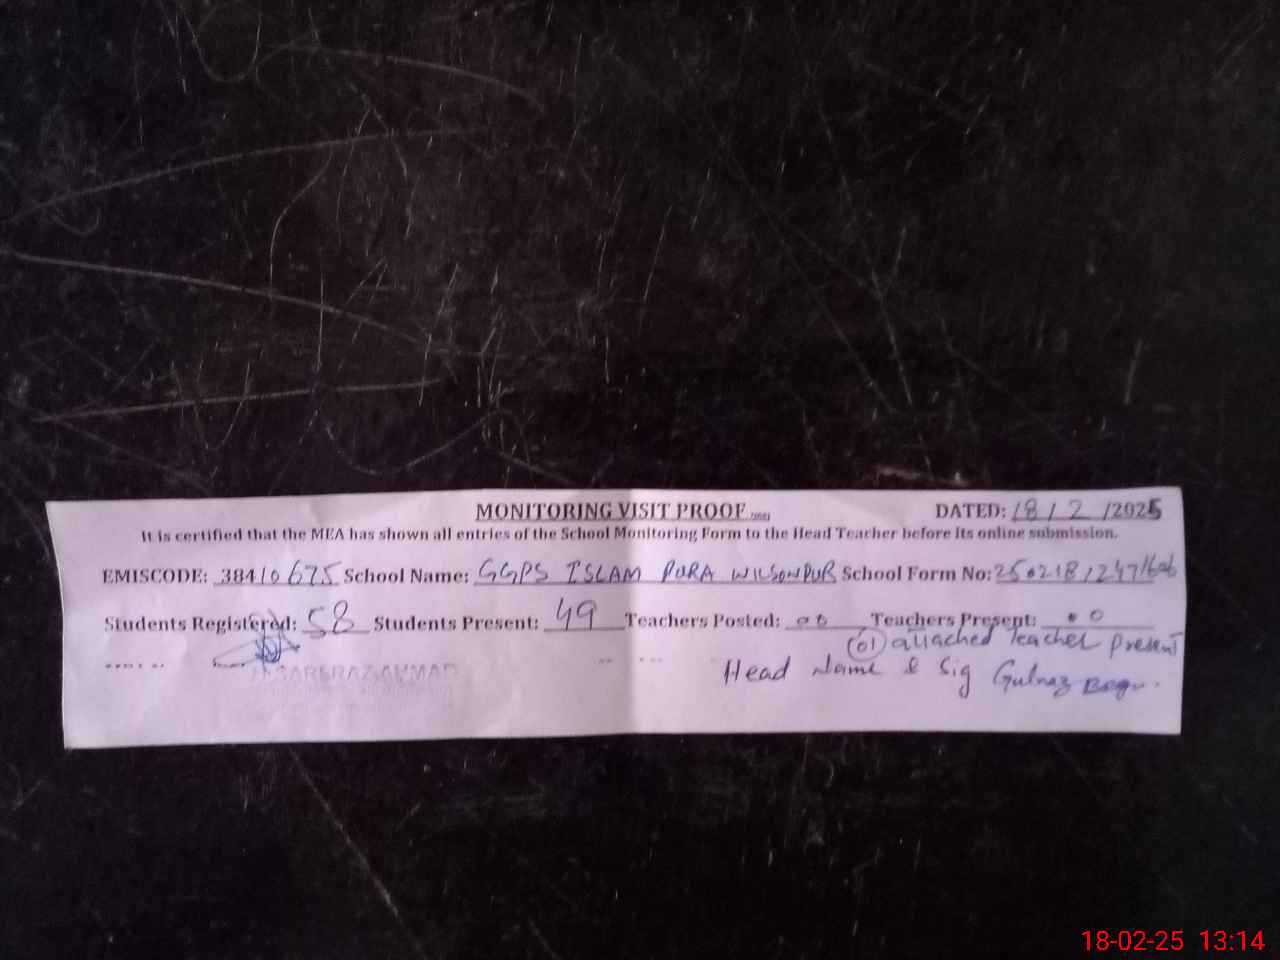 MONITORING VISIT PROOF DATED: 18/2/2025
It is certified that the MEA has shown all entries of the School Monitoring Form to the Head Teacher before its online submission.
EMISCODE: 38410675 School Name: GGPS ISLAM PURA WILSONPUR School Form No:
Students Registered: 58 Students Present: 49 Teachers Posted: 00 Teachers Present: 00
(01) attached Teacher present
Head Name & Sig Gulnaz
18-02-25 13:14